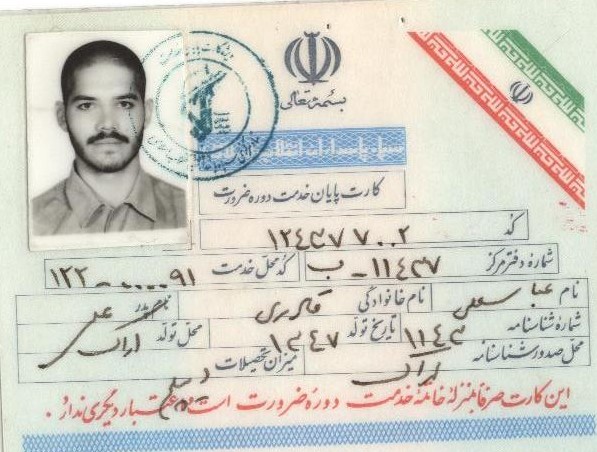 بسمه تعالی
سپاه پاسداران انقلاب
کارت پایان خدمت دوره ضرورت
کد ۱۲۴۳۷۷۰۰۲
شماره دفتر مرکز ۱۱۴۳۷-ب کد محل خدمت
نام عباسعلی نام خانوادگی قادری نام پدر علی
شماره شناسنامه ۱۱۴۳ تاریخ تولد ۱۳۴۷ محل تولد اراک
محل صدور شناسنامه اراک میزان تحصیلات دیپلم
این کارت صرفاً بمنزله خاتمه خدمت دوره ضرورت است و اعتبار دیگری ندارد.